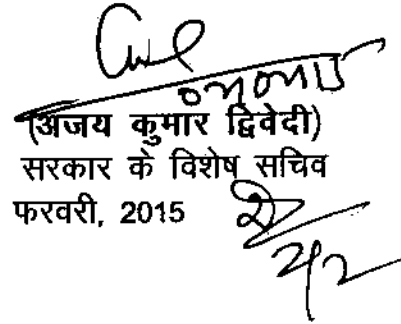 (अजय कुमार द्विवेदी)
सरकार के विशेष सचिव
फरवरी, 2015